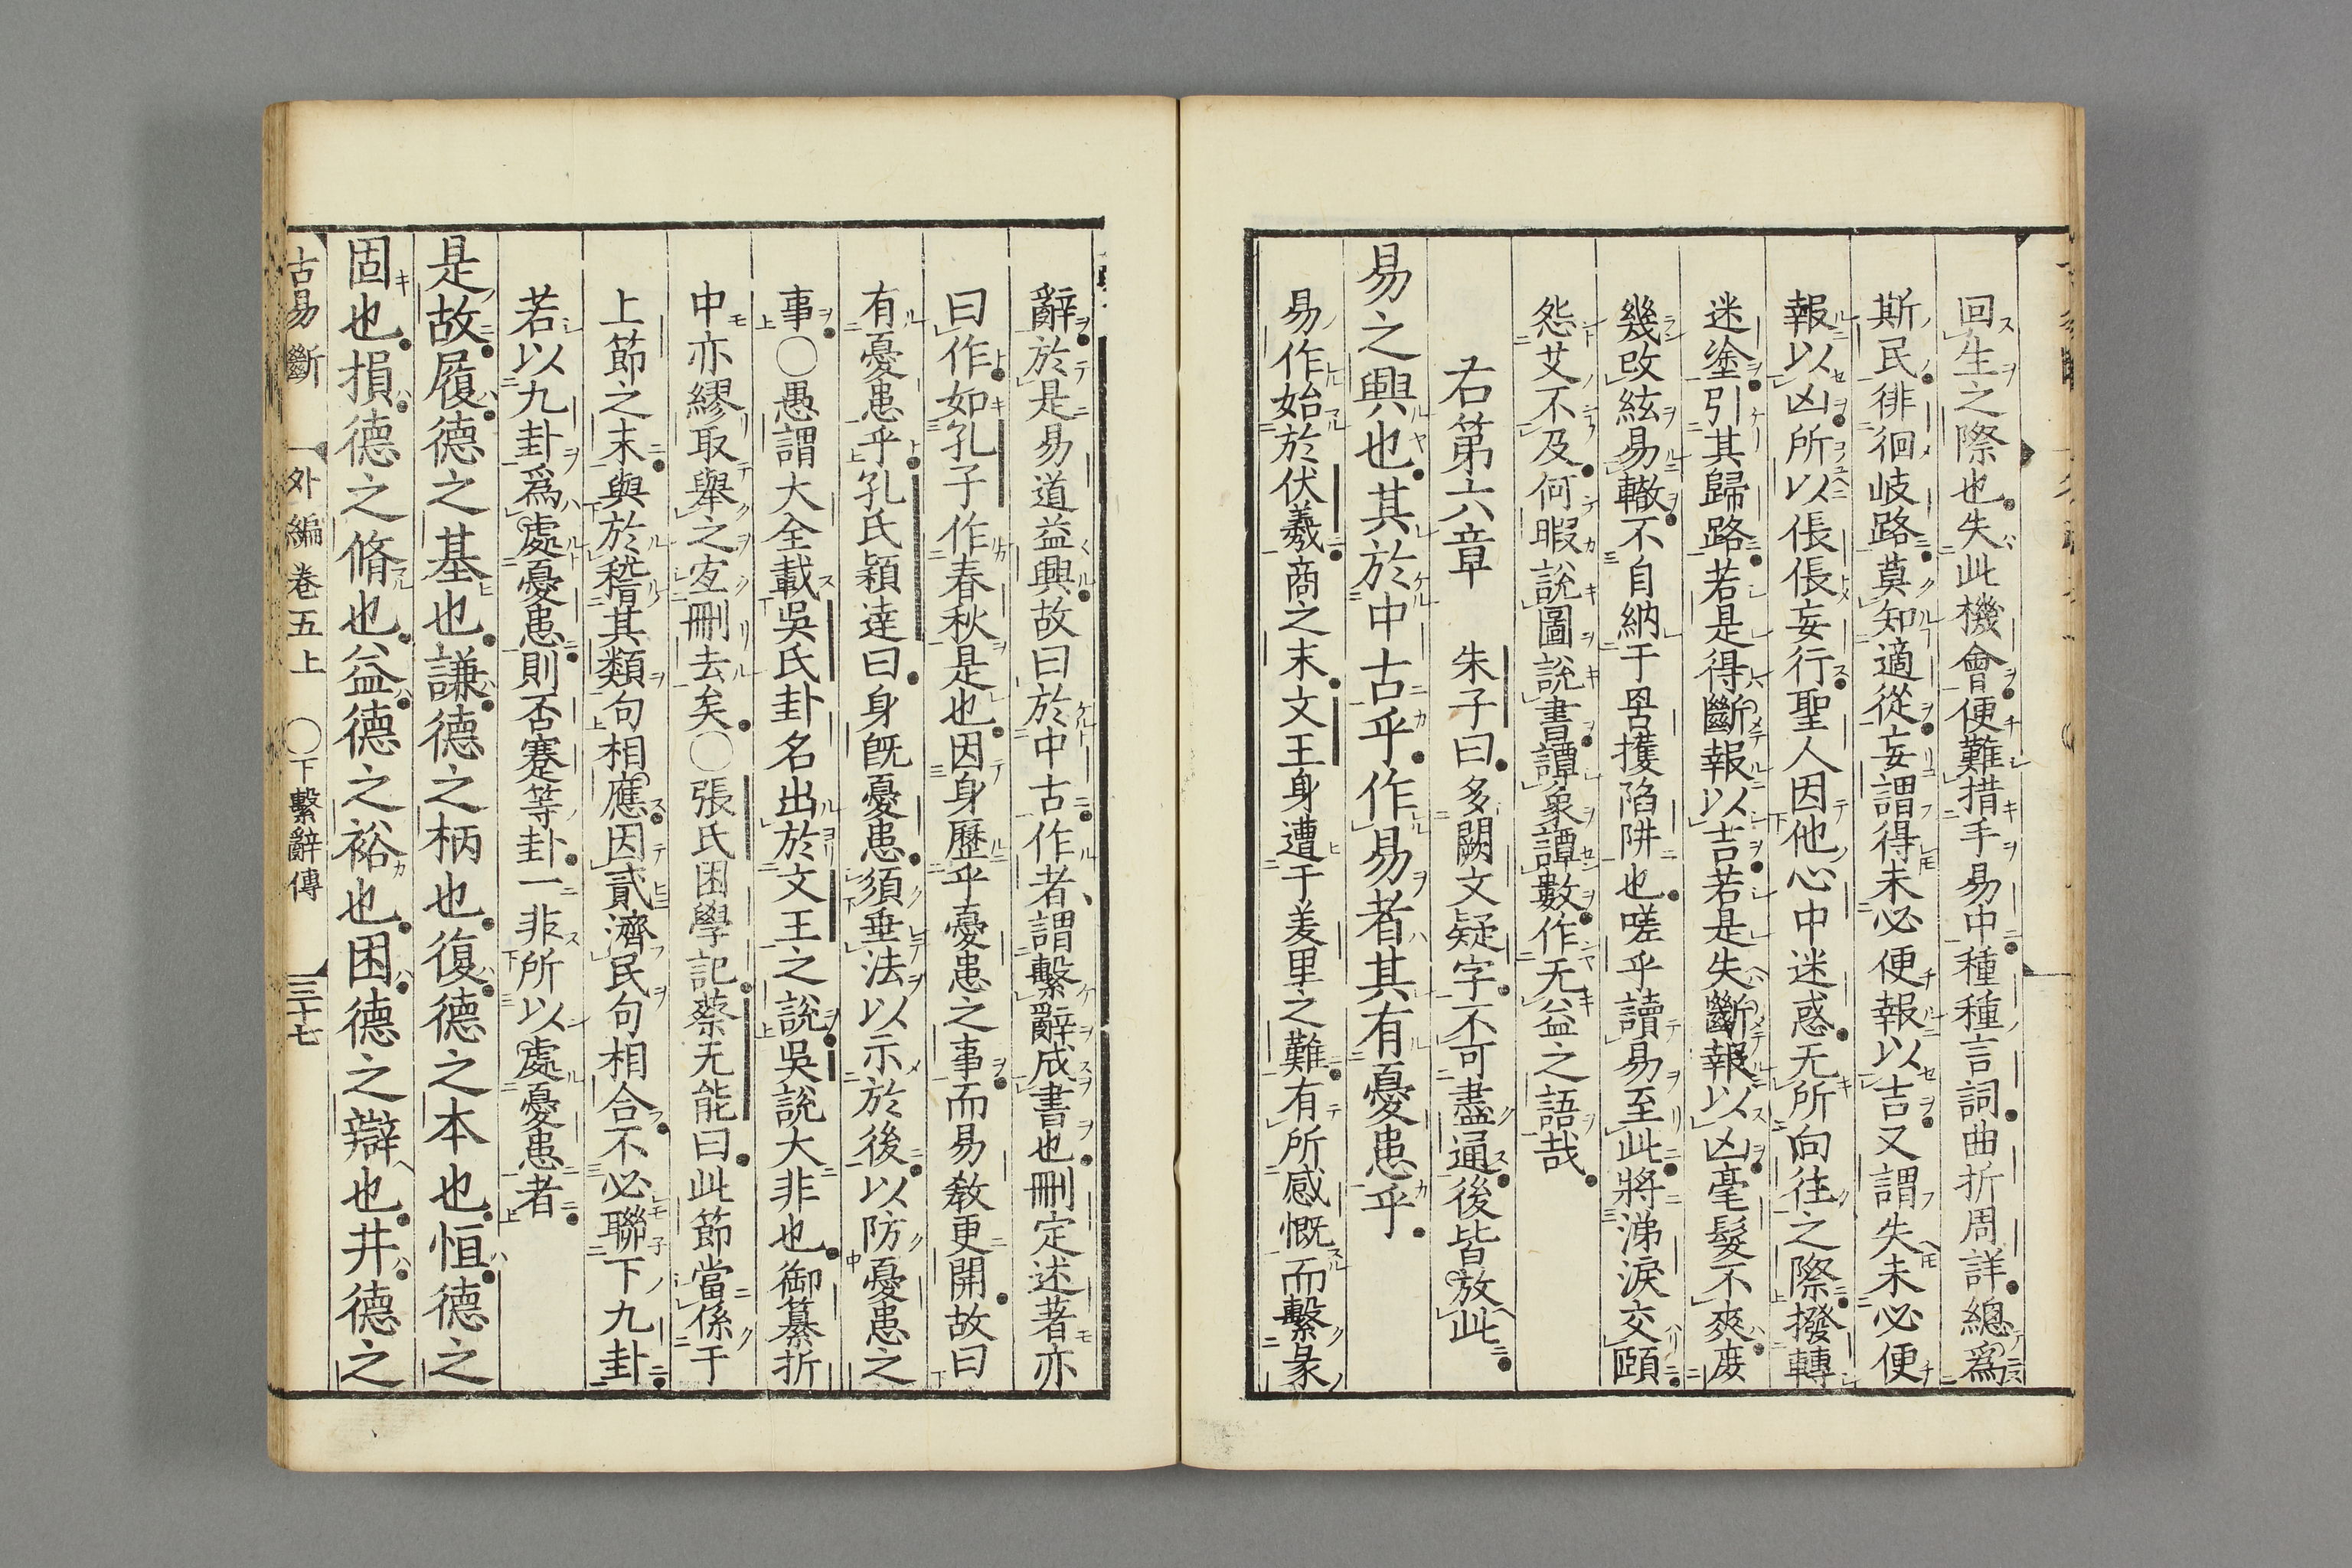 回生之際也失此機會便難措手易中種種言詞曲折周詳總爲
斯民徘徊岐路莫知適從妄謂得未必便報以吉又謂失未必便
報以凶所以倀倀妄行聖人因他心中迷惑无所向往之際撥轉
迷塗引其歸路若是得斷報以吉若是失斷報以凶毫髮不爽庶
幾改絃易轍不自納于罟擭陷阱也嗟乎讀易至此將涕淚交頤
怨艾不及何暇說圖說書譚象譚數作无益之語哉
右第六章 朱子曰多闕文疑字不可盡通後皆放此
易之興也其於中古乎作易者其有憂患乎
易作始於伏羲商之末文王身遭于羑里之難有所感慨而繫彖
辭於是易道益興故曰於中古作者謂繫辭成書也刪定述著亦
曰作如孔子作春秋是也因身歷乎憂患之事而易敎更開故曰
有憂患乎孔氏穎達曰身旣憂患須垂法以示於後以防憂患之
事〇愚謂大全載吳氏卦名出於文王之說吳說大非也御纂折
中亦繆取舉之宜刪去矣〇張氏困學記蔡无能曰此節當係于
上節之末與於稽其類句相應因貳濟民句相合不必聯下九卦
若以九卦爲處憂患則否蹇等卦一非所以處憂患者
是故履德之基也謙德之柄也復德之本也恒德之
固也損德之脩也益德之裕也困德之辯也井德之
古易斷 外編卷五上 〇下繫辭傳 三十七